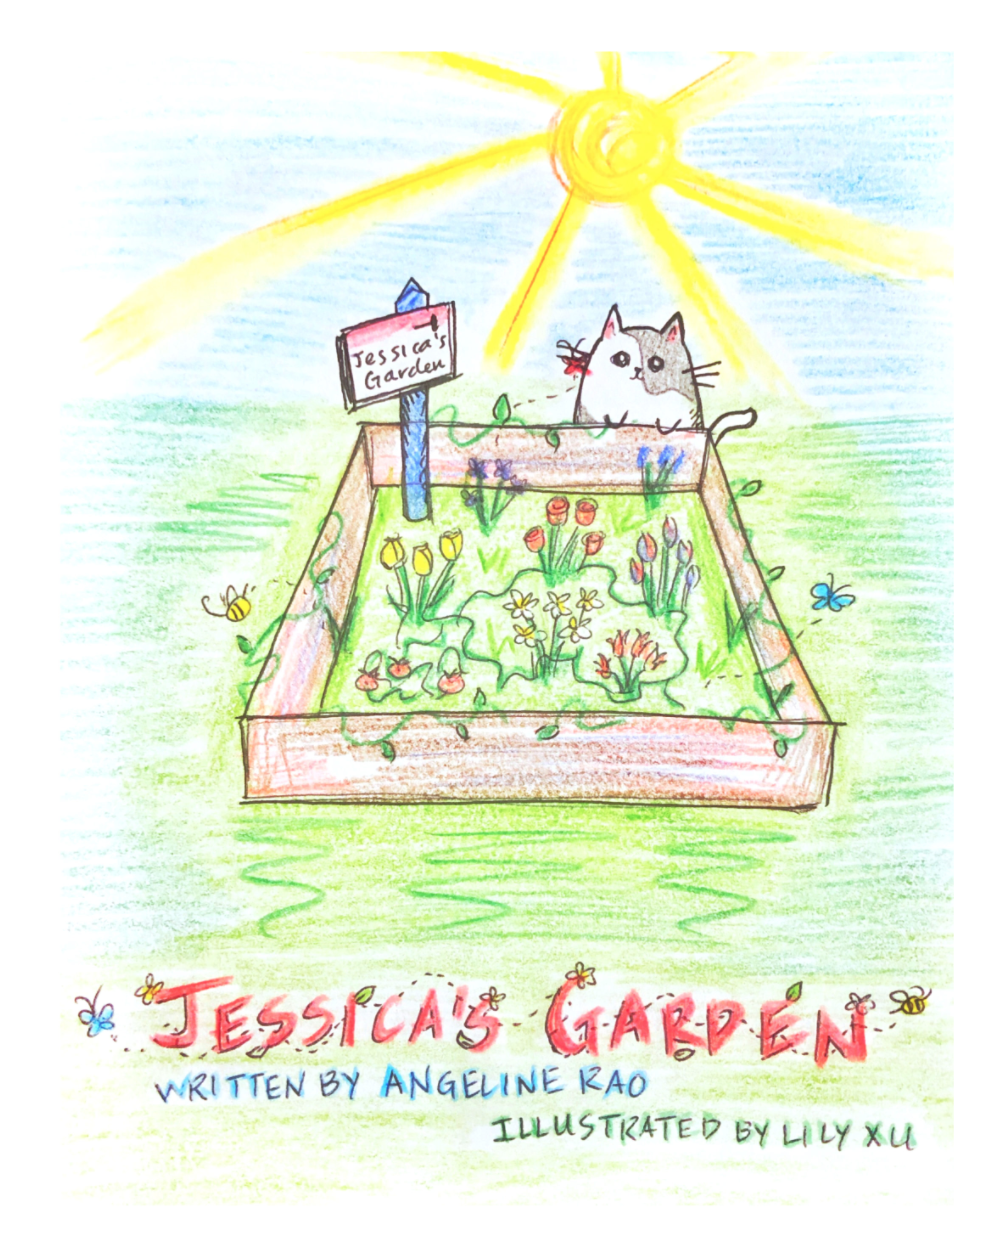 Jessica's
Garden
JESSICA'S GARDEN
WRITTEN BY ANGELINE RAO
ILLUSTRATED BY LILY XU